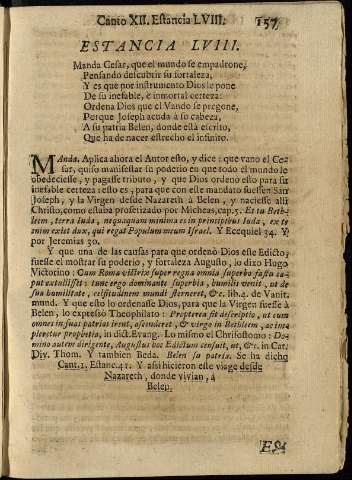 Canto XII. Estancia LVIII. 157
ESTANCIA LVIII.
Manda Cesar, que el mundo se empadrone,
Pensando descubrir su fortaleza,
Y es que por instrumento Dios le pone
De su inefable, è inmortal certeza:
Ordena Dios que el Vando se pregone,
Porque Joseph acuda à su cabeza,
A su patria Belen, donde està escrito,
Que ha de nacer estrecho el infinito.
Manda. Aplica ahora el Autor esto, y dice: que vano el Ce-
sar, quiso manifestar su poderio en que todo el mundo le
obedeciesse, y pagasse tributo, y que Dios ordenò esto para su
inefable certeza: esto es; para que con este mandato fuessen San
Joseph, y la Virgen desde Nazareth à Belen, y naciesse allì
Christo, como estaba profetizado por Micheas, cap. 5. Et tu Beth-
leem, terra Iuda, nequaquam minima es in principibus Iuda, ex te
enim exiet dux, qui regat Populum meum Israel. Y Ecequiel 34. Y
por Jeremias 30.
Y que una de las causas para que ordenò Dios este Edicto,
fuesse el mostrar su poderio, y fortaleza Augusto, lo dixo Hugo
Victorino: Cum Roma victrix super regna omnia superbo fastu ca-
put extulisset: tunc ergo dominante superbia, humilis venit, ut de
sua humilitate, celsitudinem mundi sterneret, &c. lib. 4. de Vanit.
mund. Y que esto lo ordenasse Dios, para que la Virgen fuesse à
Belen, lo expressò Theophilato: Propterea fit descriptio, ut cum
omnes in suas patrias irent, ascenderet, & virgo in Bethleem, ac im-
pleretur prophetia, in dict. Evang. Lo mismo el Chrisostomo: Do-
mino autem dirigente, Augustus hoc Edictum censuit, ut, &c. in Cat.
Div. Thom. Y tambien Beda. Belen su patria. Se ha dicho
Cant. 1. Estanc. 41. Y assi hicieron este viage desde
Nazareth, donde vivian, à
Belen.
ES-